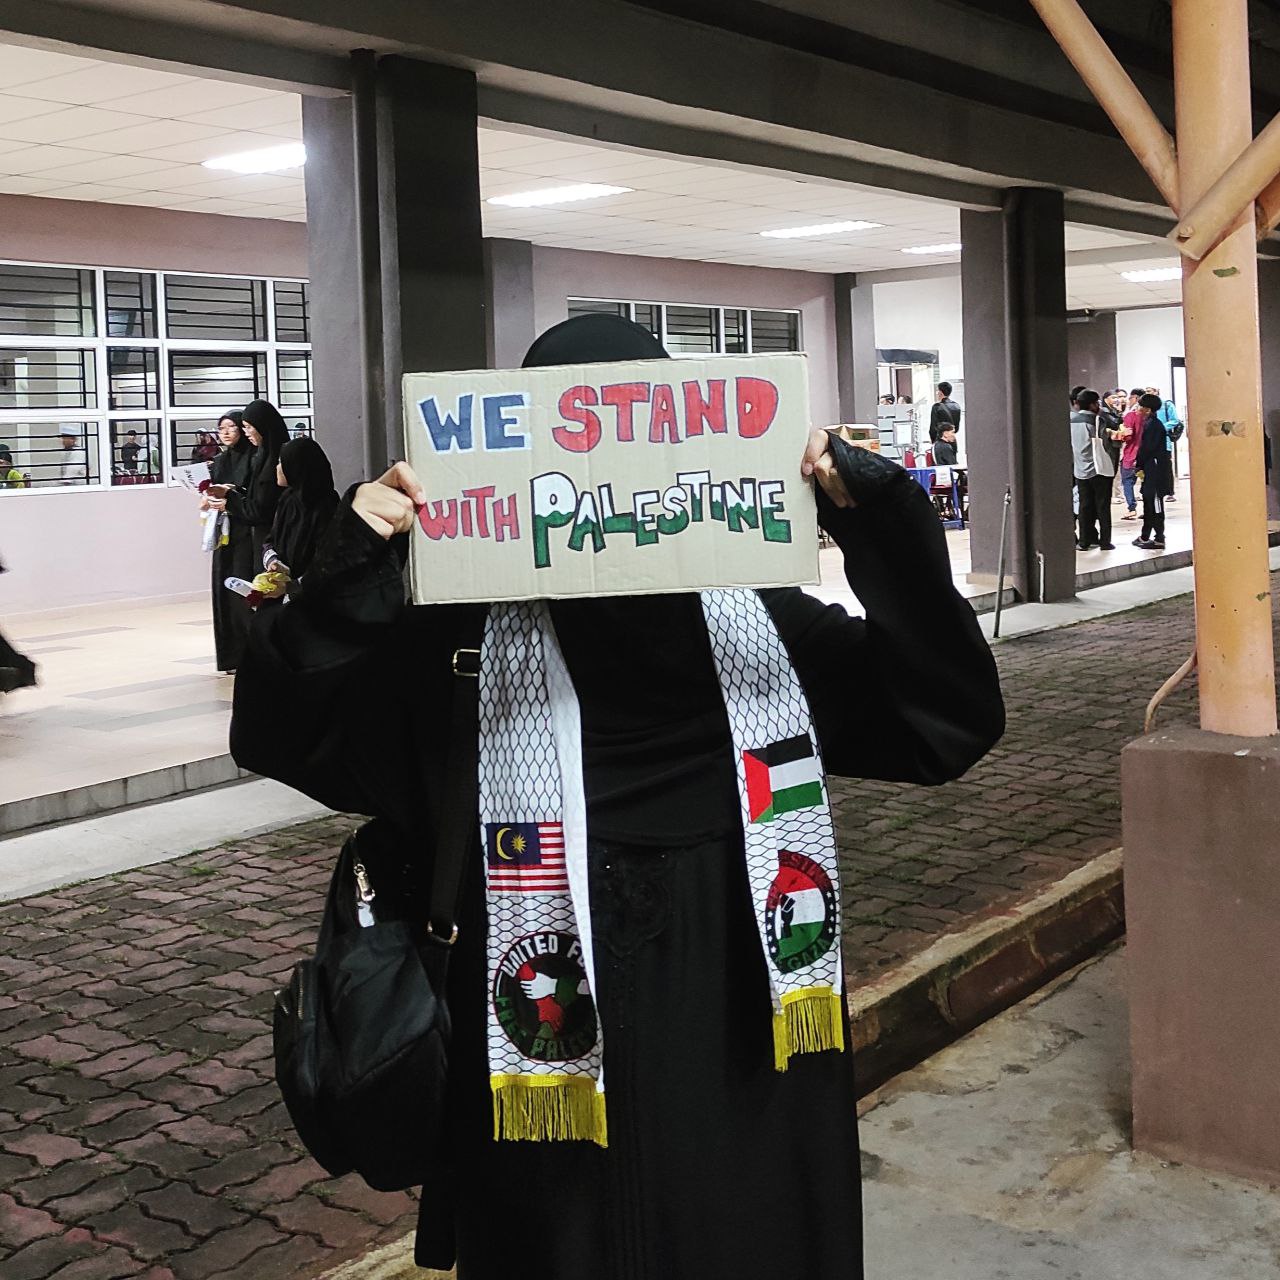 WE STAND
WITH PALESTINE
UNITED FOR
FREE PALESTINE
GAZA